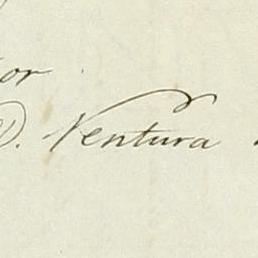 or
D. Ventura